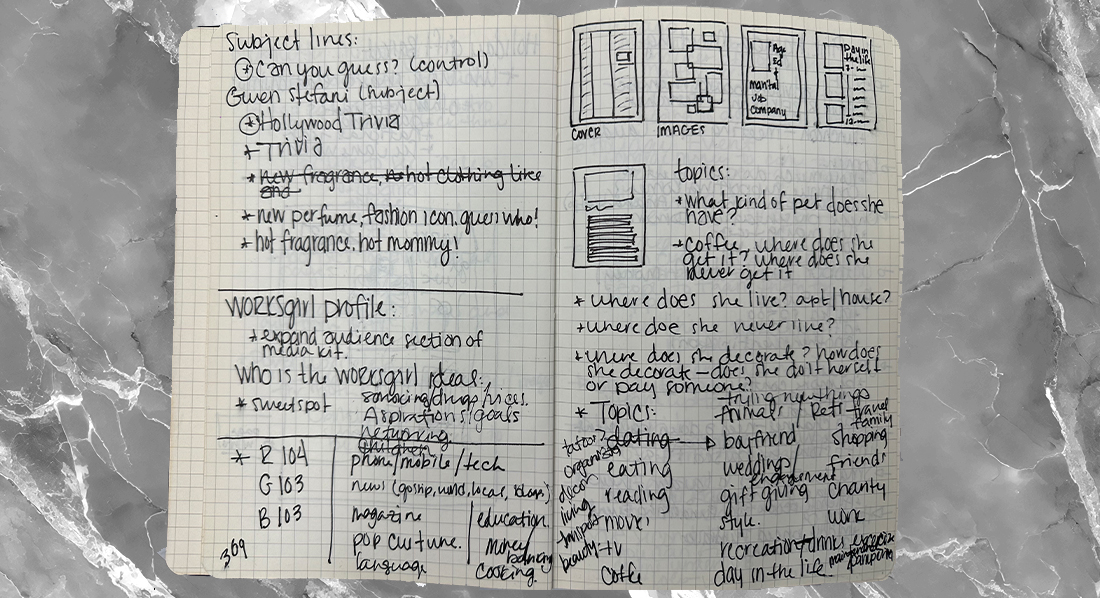 Subject lines:
* Can you guess? (control)
Gwen Stefani (subject)
* Hollywood Trivia
* Trivia
* new fragrance, hot clothing line
and
* new perfume, fashion icon. guess who!
* hot fragrance. hot mommy!
WORKSgirl profile:
* expand audience section of
media kit.
Who is the WORKSgirl ideas:
* sweetspot
smoking/drugs/vices.
Aspirations/goals
Returning
children
* R 104
G 103
B 103
369
phone/mobile/tech
news (gossip, world, local,
magazine
pop culture.
language
education
money
banking
cooking
COVER
IMAGES
Age
Ed
&
marital
Job
Company
Day in
the life
7-
12-
topics:
* what kind of pet does she
have?
* coffee, where does she
get it? where does she
never get it
* where does she live? apt/house?
* where doe she never live?
* where does she decorate? how does
she decorate – does she do it herself
or pay someone?
* Topics:
tattoo?
organized
decor
living
beauty
dating
eating
reading
tv
trying new things
Animals / Pets
travel
family
boyfriend
shopping
wedding/
engagement
friends
gift giving
charity
style.
work
recreation
exercise
day in the life
pampering